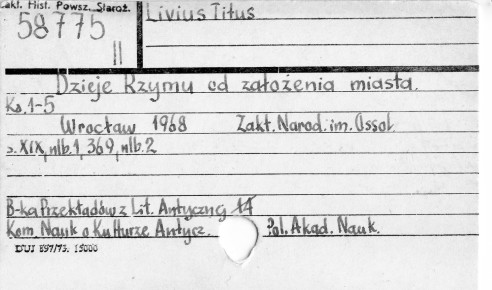 Zakł. Hist. Powsz. Staroż.
58775
II
Livius Titus
Dzieje Rzymu od założenia miasta.
Ks. 1-5
Wrocław 1968 Zakł. Narod. im. Ossol.
s. XIX, nlb. 1, 369, nlb. 2
B-ka Przekładów z Lit. Antycznej 14
Kom. Nauk o Kulturze Antycz. Pol. Akad. Nauk.
DUJ 897/75. 15000